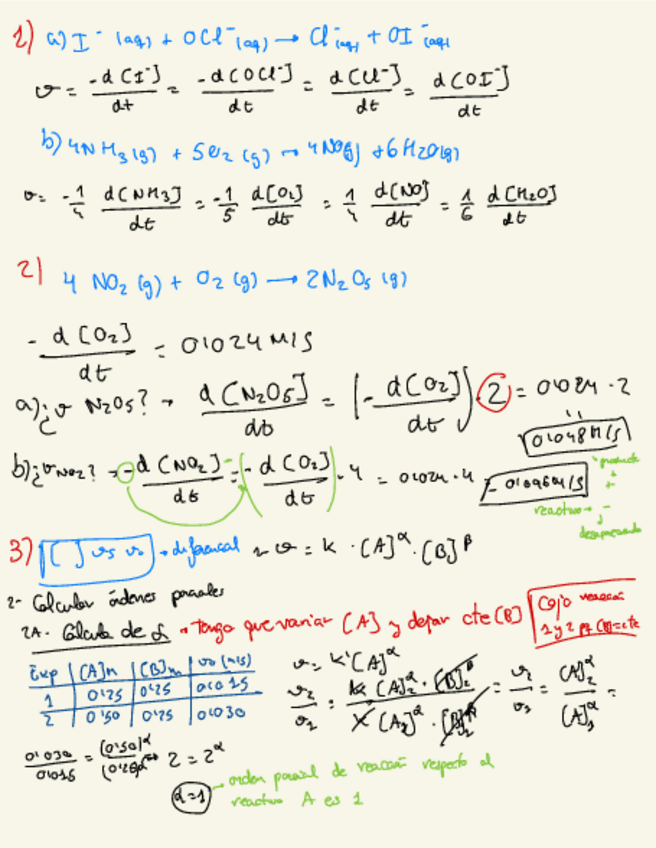 1) a) I⁻ (aq) + OCl⁻ (aq) → Cl⁻(aq) + OI⁻(aq)
v = -d[I⁻]/dt = -d[OCl⁻]/dt = d[Cl⁻]/dt = d[OI⁻]/dt
b) 4NH3(g) + 5O2 (g) → 4NO(g) + 6H2O(g)
v = -1/4 d[NH3]/dt = -1/5 d[O2]/dt = 1/4 d[NO]/dt = 1/6 d[H2O]/dt
2) 4 NO2 (g) + O2 (g) → 2N2O5 (g)
- d[O2]/dt = 0'024 M/S
a) ¿v N2O5? → d[N2O5]/dt = (- d[O2]/dt) · 2 = 0'024 · 2
= 0'048 M/S
b) ¿v NO2? → -d[NO2]/dt = (- d[O2]/dt) · 4 = 0'024 · 4 = - 0'096 M/S
producto → +
reactivo → -
desapareciendo
3) [ ] vs v0 → diferencial → v = k · [A]^α · [B]^β
2- Calcular órdenes parciales
2A. Cálculo de α → Tengo que variar [A] y dejar cte [B]
Cojo reacción
1 y 2 pq [B]=cte
Exp | [A]M | [B]M | v0 (M/s)
1 | 0'25 | 0'25 | 0'015
2 | 0'50 | 0'25 | 0'030
v = k'[A]^α
= [A]2^α / [A]1^α =
0'030/0'015 = (0'50)^α/(0'25)^α 2 = 2^α
α=1 → orden parcial de reacción respecto al
reactivo A es 1